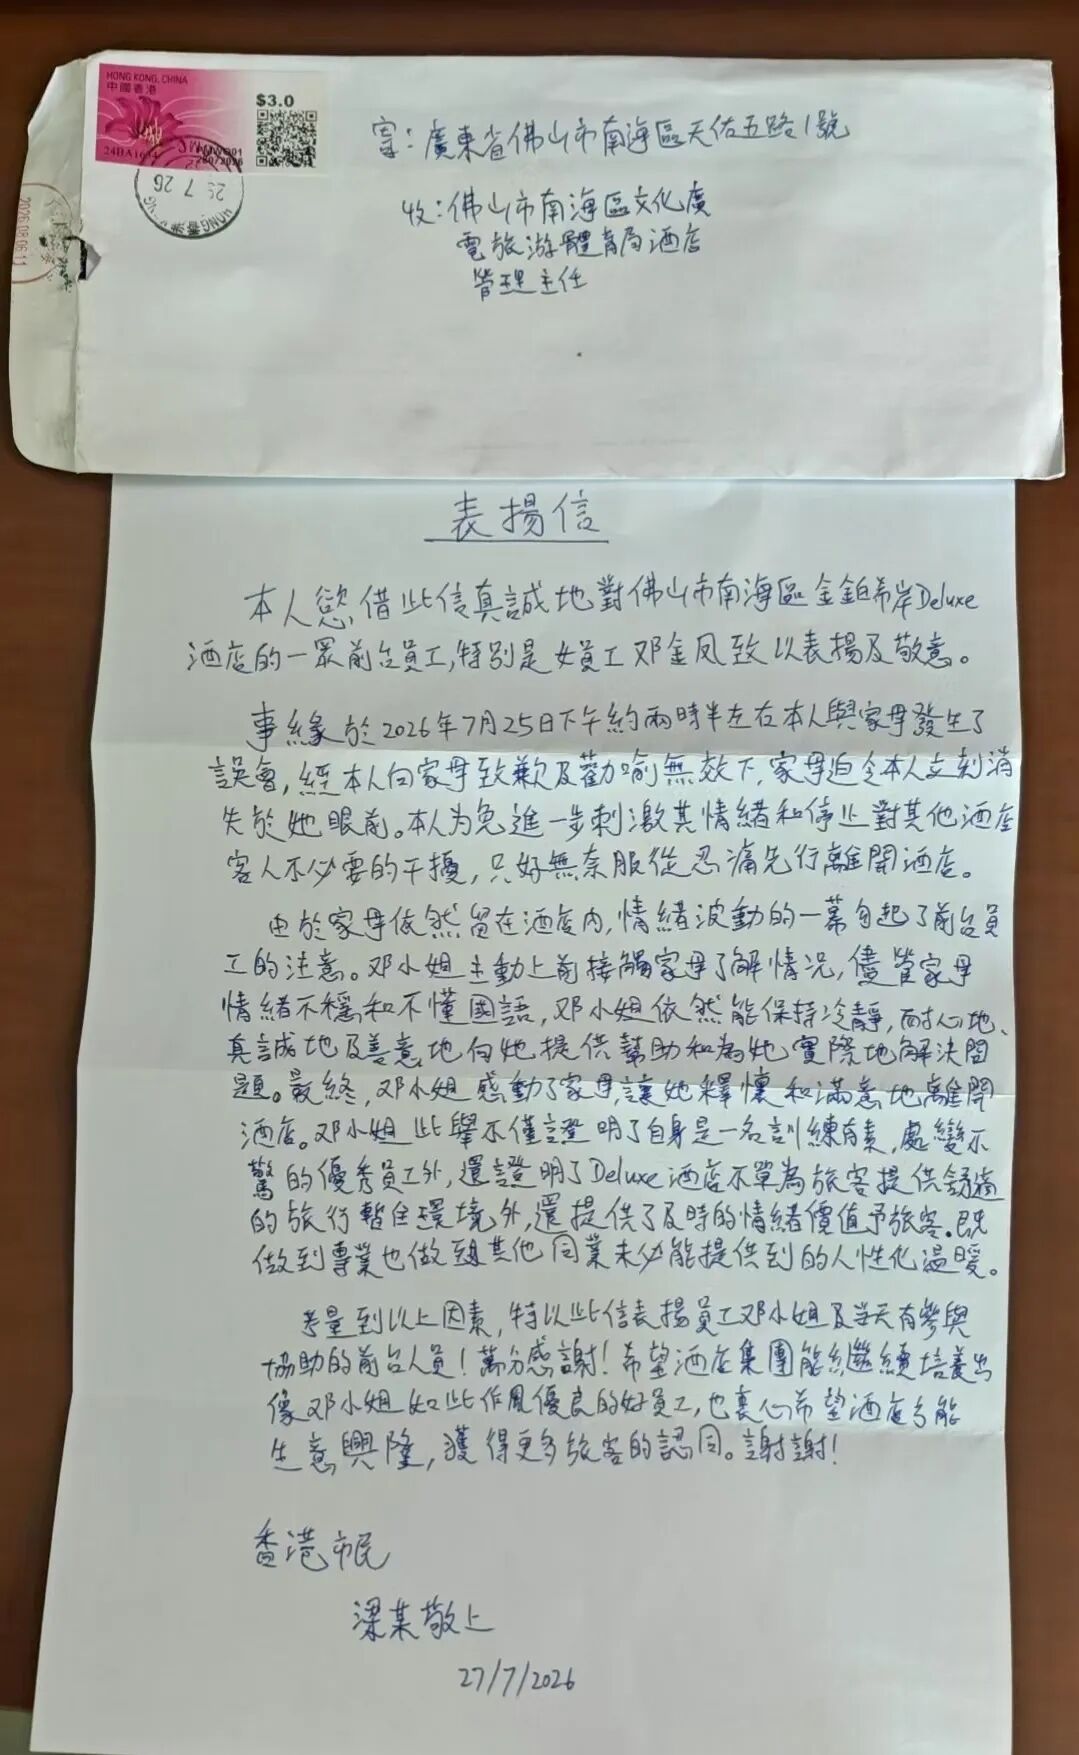 HONG KONG, CHINA
中國香港
$3.0
24BA1614
29 7 26
2026.08.06.11
寄：廣東省佛山市南海區天佑五路1號
收：佛山市南海區文化廣
電旅游體育局酒店
管理主任
表揚信
本人慾借此信真誠地對佛山市南海區金鉑希岸Deluxe
酒店的一眾前台員工,特別是女員工邓金凤致以表揚及敬意。
事緣於2026年7月25日下午約兩時半左右本人與家母發生了
誤會,經本人向家母致歉及勸喻無效下,家母迫令本人立刻消
失於她眼前。本人为免進一步刺激其情緒和停止對其他酒店
客人不必要的干擾,只好無奈服從忍痛先行離開酒店。
由於家母依然留在酒店內,情緒波動的一幕勾起了前台員
工的注意。邓小姐主動上前接觸家母了解情況,儘管家母
情緒不穩和不懂國語,邓小姐依然能保持冷靜,耐心地、
真誠地及善意地向她提供幫助和為她實際地解決問
題。最終,邓小姐感動了家母,讓她釋懷和滿意地離開
酒店。邓小姐此舉不僅證明了自身是一名訓練有素,處變不
驚的優秀員工外,還證明了Deluxe酒店不單為旅客提供舒適
的旅行暫住環境外,還提供了及時的情緒價值予旅客.既
做到專業也做到其他同業未必能提供到的人性化溫暖。
考量到以上因素,特以此信表揚員工邓小姐及當天有參與
協助的前台人員!萬分感謝!希望酒店集團能繼續培養出
像邓小姐如此作風優良的好員工,也衷心希望酒店能
生意興隆,獲得更多旅客的認同。謝謝!
香港市民
梁某敬上
27/7/2026